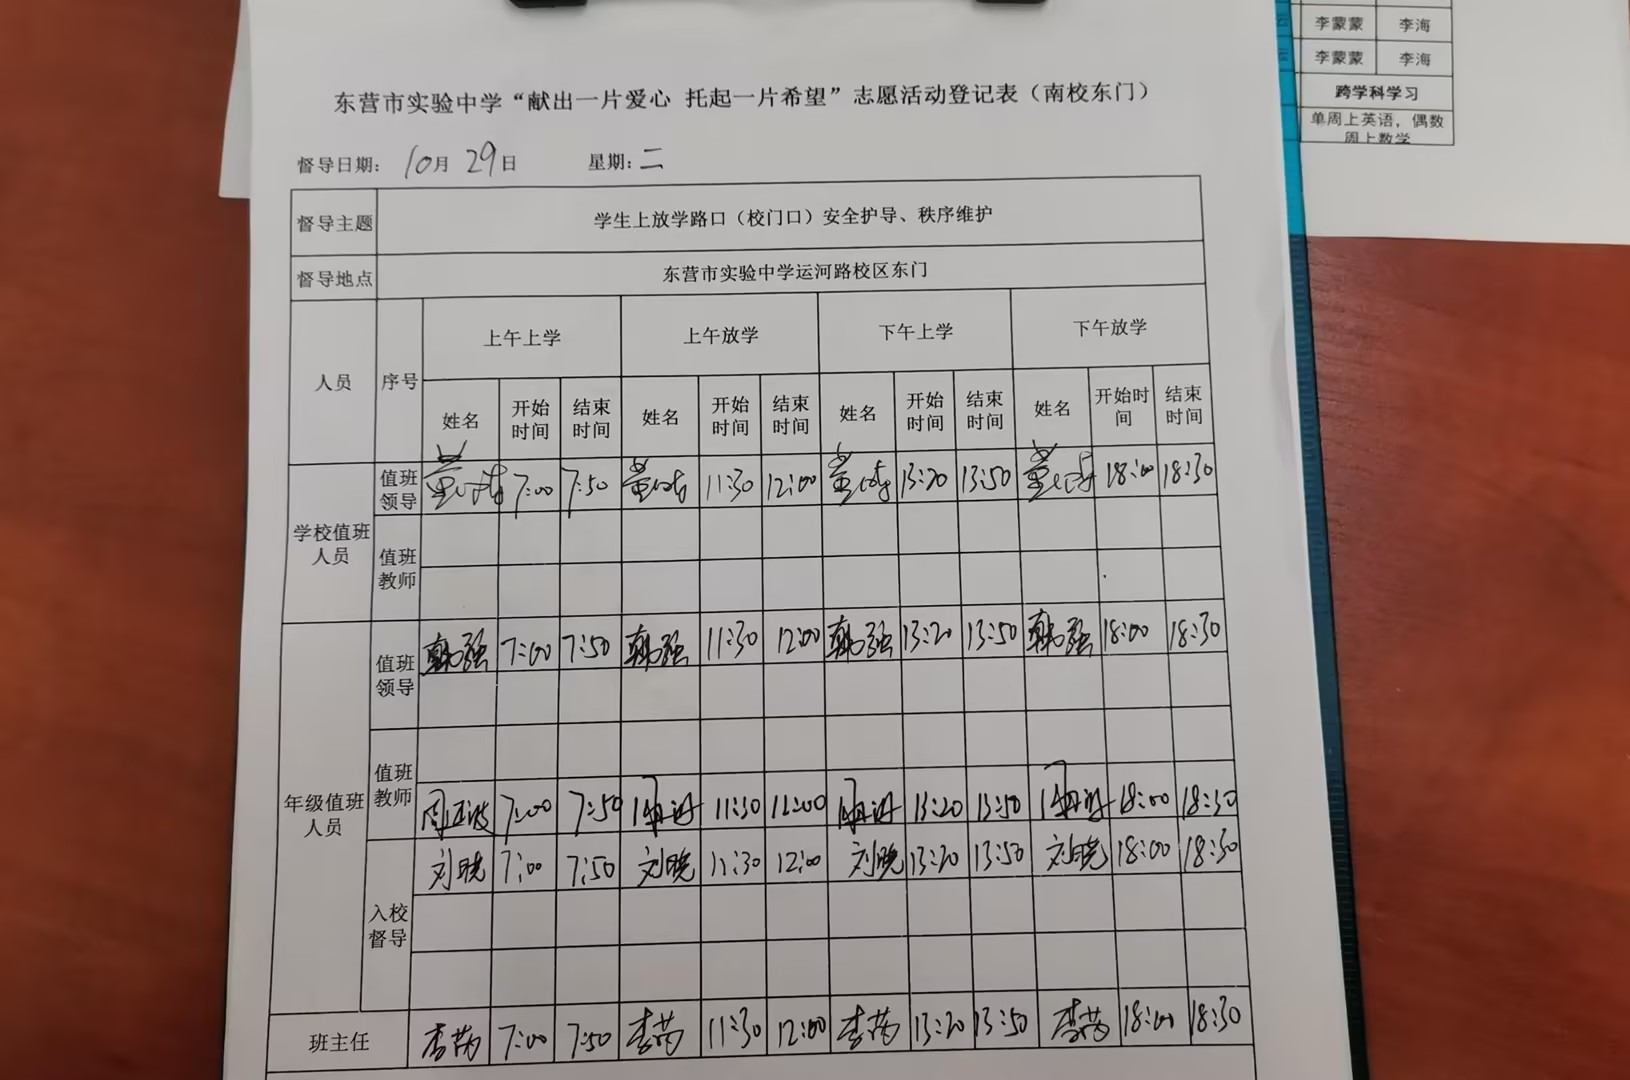 李蒙蒙 李海
李蒙蒙 李海
跨学科学习
单周上英语，偶数
周上数学
东营市实验中学“献出一片爱心 托起一片希望”志愿活动登记表（南校东门）
督导日期： 10月 29日 星期：二
督导主题 学生上放学路口（校门口）安全护导、秩序维护
督导地点 东营市实验中学运河路校区东门
人员 序号 上午上学 上午放学 下午上学 下午放学
姓名 开始时间 结束时间 姓名 开始时间 结束时间 姓名 开始时间 结束时间 姓名 开始时间 结束时间
学校值班人员 值班领导 7:00 7:50 11:30 12:00 13:20 13:50 18:00 18:30
值班教师
年级值班人员 值班领导 韩强 7:00 7:50 韩强 11:30 12:00 韩强 13:20 13:50 韩强 18:00 18:30
值班教师 7:00 7:50 11:30 12:00 13:20 13:50 18:00 18:30
入校督导 刘晓 7:00 7:50 刘晓 11:30 12:00 刘晓 13:20 13:50 刘晓 18:00 18:30
班主任 7:00 7:50 11:30 12:00 13:20 13:50 18:00 18:30